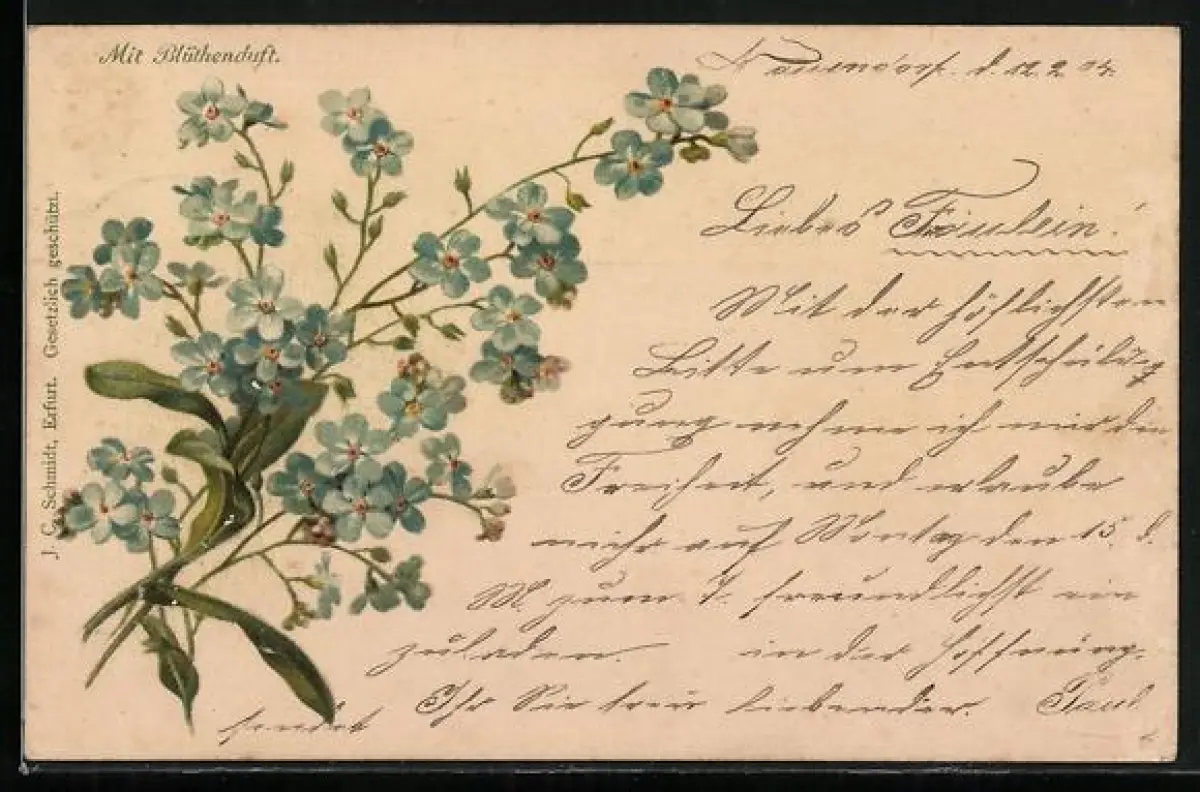 Mit Blüthenduft.
J. C. Schmidt, Erfurt. Gesetzlich geschützt.
d. 12.2.04.
Liebes Fräulein!
Mit der höflichsten
Bitte um Entschuldig
gung nehme ich mir die
Freiheit, und erlaube
mich auf Montag den 15. d.
M. zum freundlichst ein
zuladen. in der Hoffnung.
Ihr Sie treu liebender. Paul
sendet